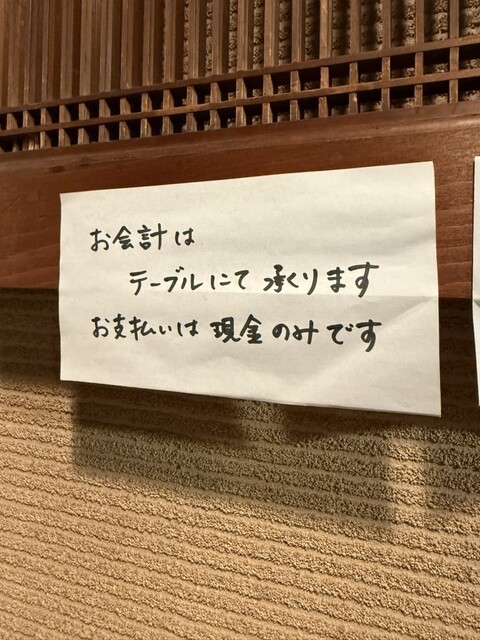 お会計は
テーブルにて承くります
お支払いは現金のみです